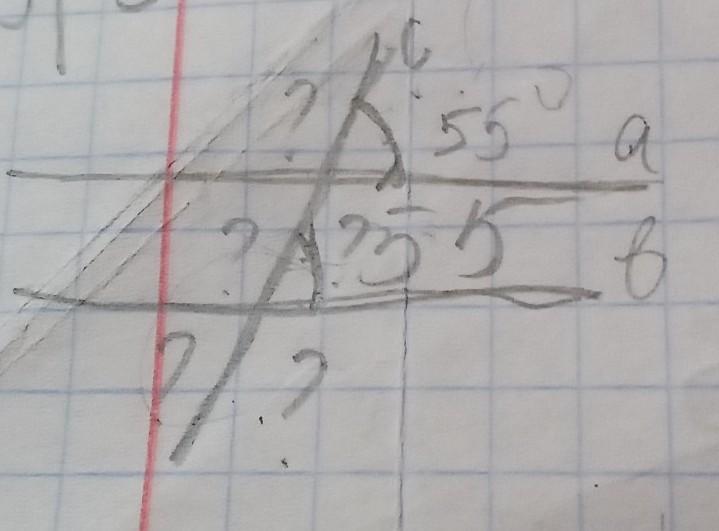 c
? 55° a
? ? 55 b
? ?